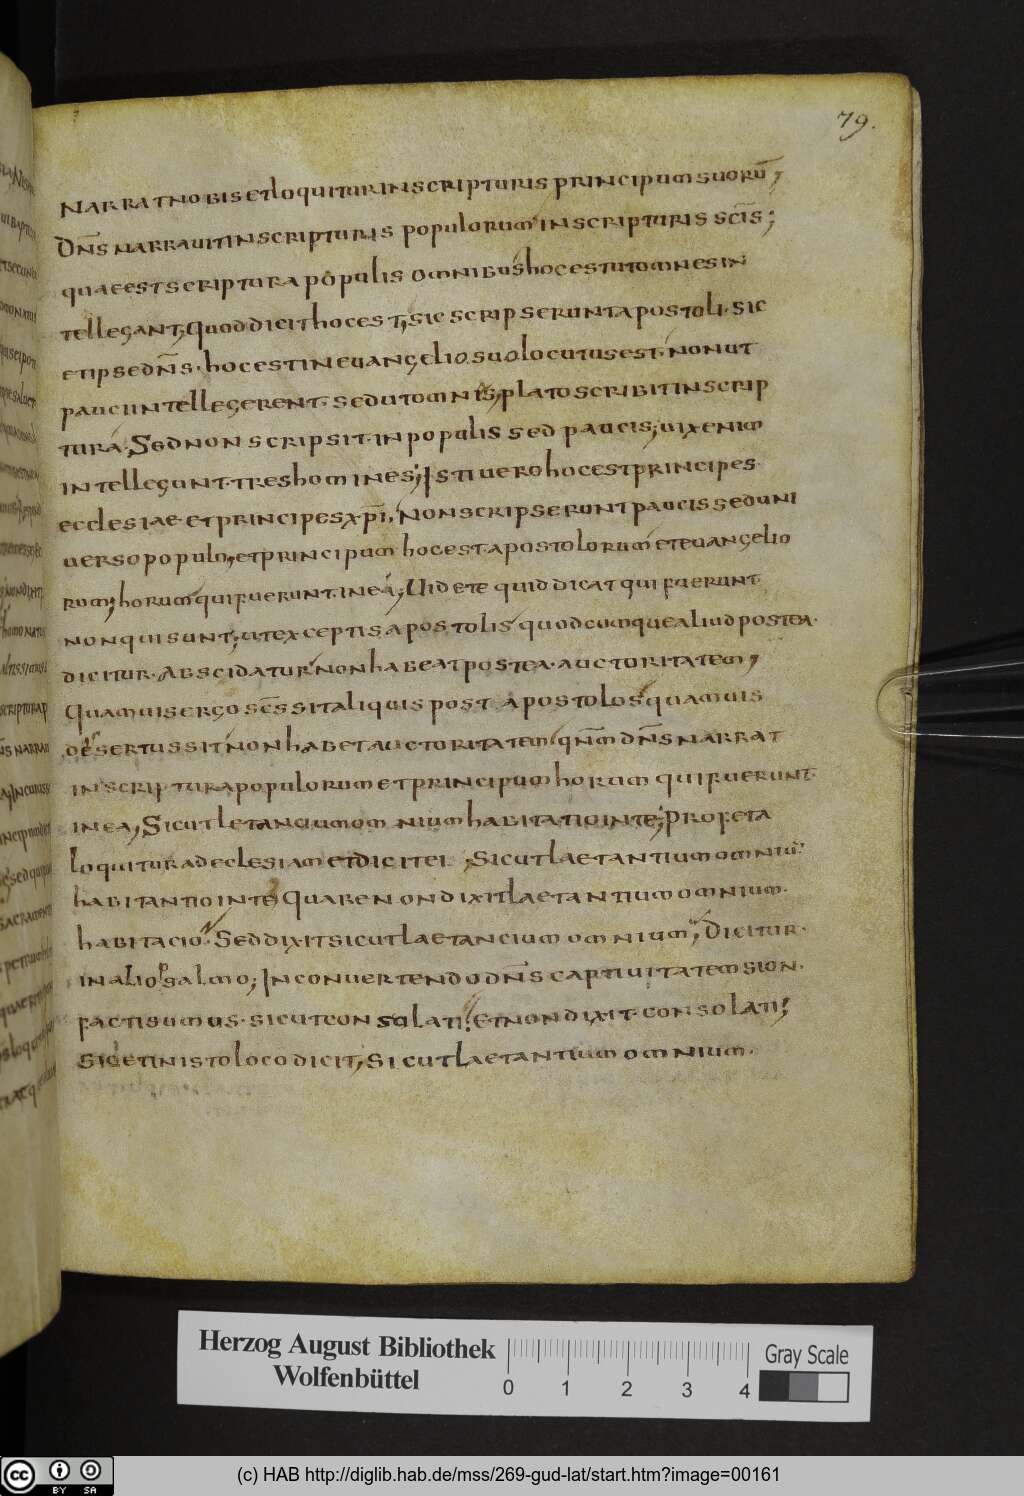 79.
narrat nobis et loquitur in scripturis principum suorū;
Dn̄s narrauit in scripturis populorum in scripturis scīs;
quae est scriptura populis omnibus hoc est ut omnes in
tellegant; quod dicit hoc est, sic scripserunt apostoli. sic
et ipse dn̄s. hoc est in euangelio suo locutus est. non ut
pauci intellegerent. sed ut omnis, plato scribit in scrip
tura. Sed non scripsit in populis sed paucis; uix enim
intellegunt. tres homines; Isti uero hoc est principes
ecclesiae. et principes xp̄i, Non scripserunt paucis sed uni
uerso populo, et principum hoc est apostolorum et euangelio
rum; horum qui fuerunt. in ea; Uidete quid dicat qui fuerunt
non qui sunt; ut exceptis apostolis quodcumque aliud postea
dicitur. Abscidatur non habeat postea. auctoritatem,
Quamuis ergo scs̄ sit aliquis post apostolos quamuis
desertus sit non habet auctoritatem qn̄m dn̄s narrat
in scriptura populorum et principum horum qui fuerunt
in ea, Sicut letancium omnium habitatio in te; Profeta
loquitur ad eclesiam et dicit ei, Sicut laetantium omniū
habitantio in te Quare non dixit laetantium omnium.
habitacio. Sed dixit sicut laetancium omnium, Dicitur.
in alio psalmo; In conuertendo dn̄s captiuitatem sion.
facti sumus. sicut consolati. Et non dixit. consolati;
Sic et in isto loco dicit, Sicut laetantium omnium.
Herzog August Bibliothek
Wolfenbüttel
0 1 2 3 4
Gray Scale
cc BY SA
(c) HAB http://diglib.hab.de/mss/269-gud-lat/start.htm?image=00161